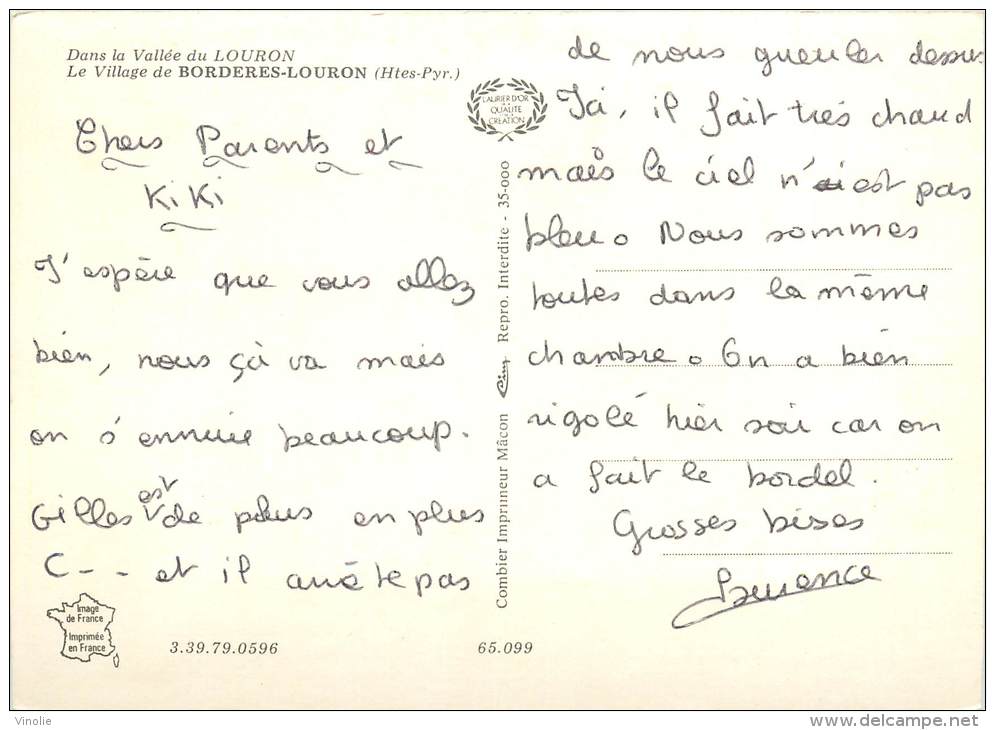 Dans la Vallée du LOURON
Le Village de BORDERES-LOURON (Htes-Pyr.)
Chers Parents et
KiKi
J'espère que vous allez
bien, nous çà va mais
on s'ennuie beaucoup.
Gilles est de plus en plus
C - - et il arrête pas
de nous gueuler dessus.
Ici, il fait très chaud
mais le ciel n'est pas
bleu. Nous sommes
toutes dans la même
chambre. On a bien
rigolé hier soir car on
a fait le bordel.
Grosses bises
Laurence
LAURIER D'OR
QUALITE
CREATION
Combier Imprimeur Mâcon Cim Repro. Interdite - 35-000
Image
de France
Imprimée
en France
3.39.79.0596
65.099
Vinolie
www.delcampe.net